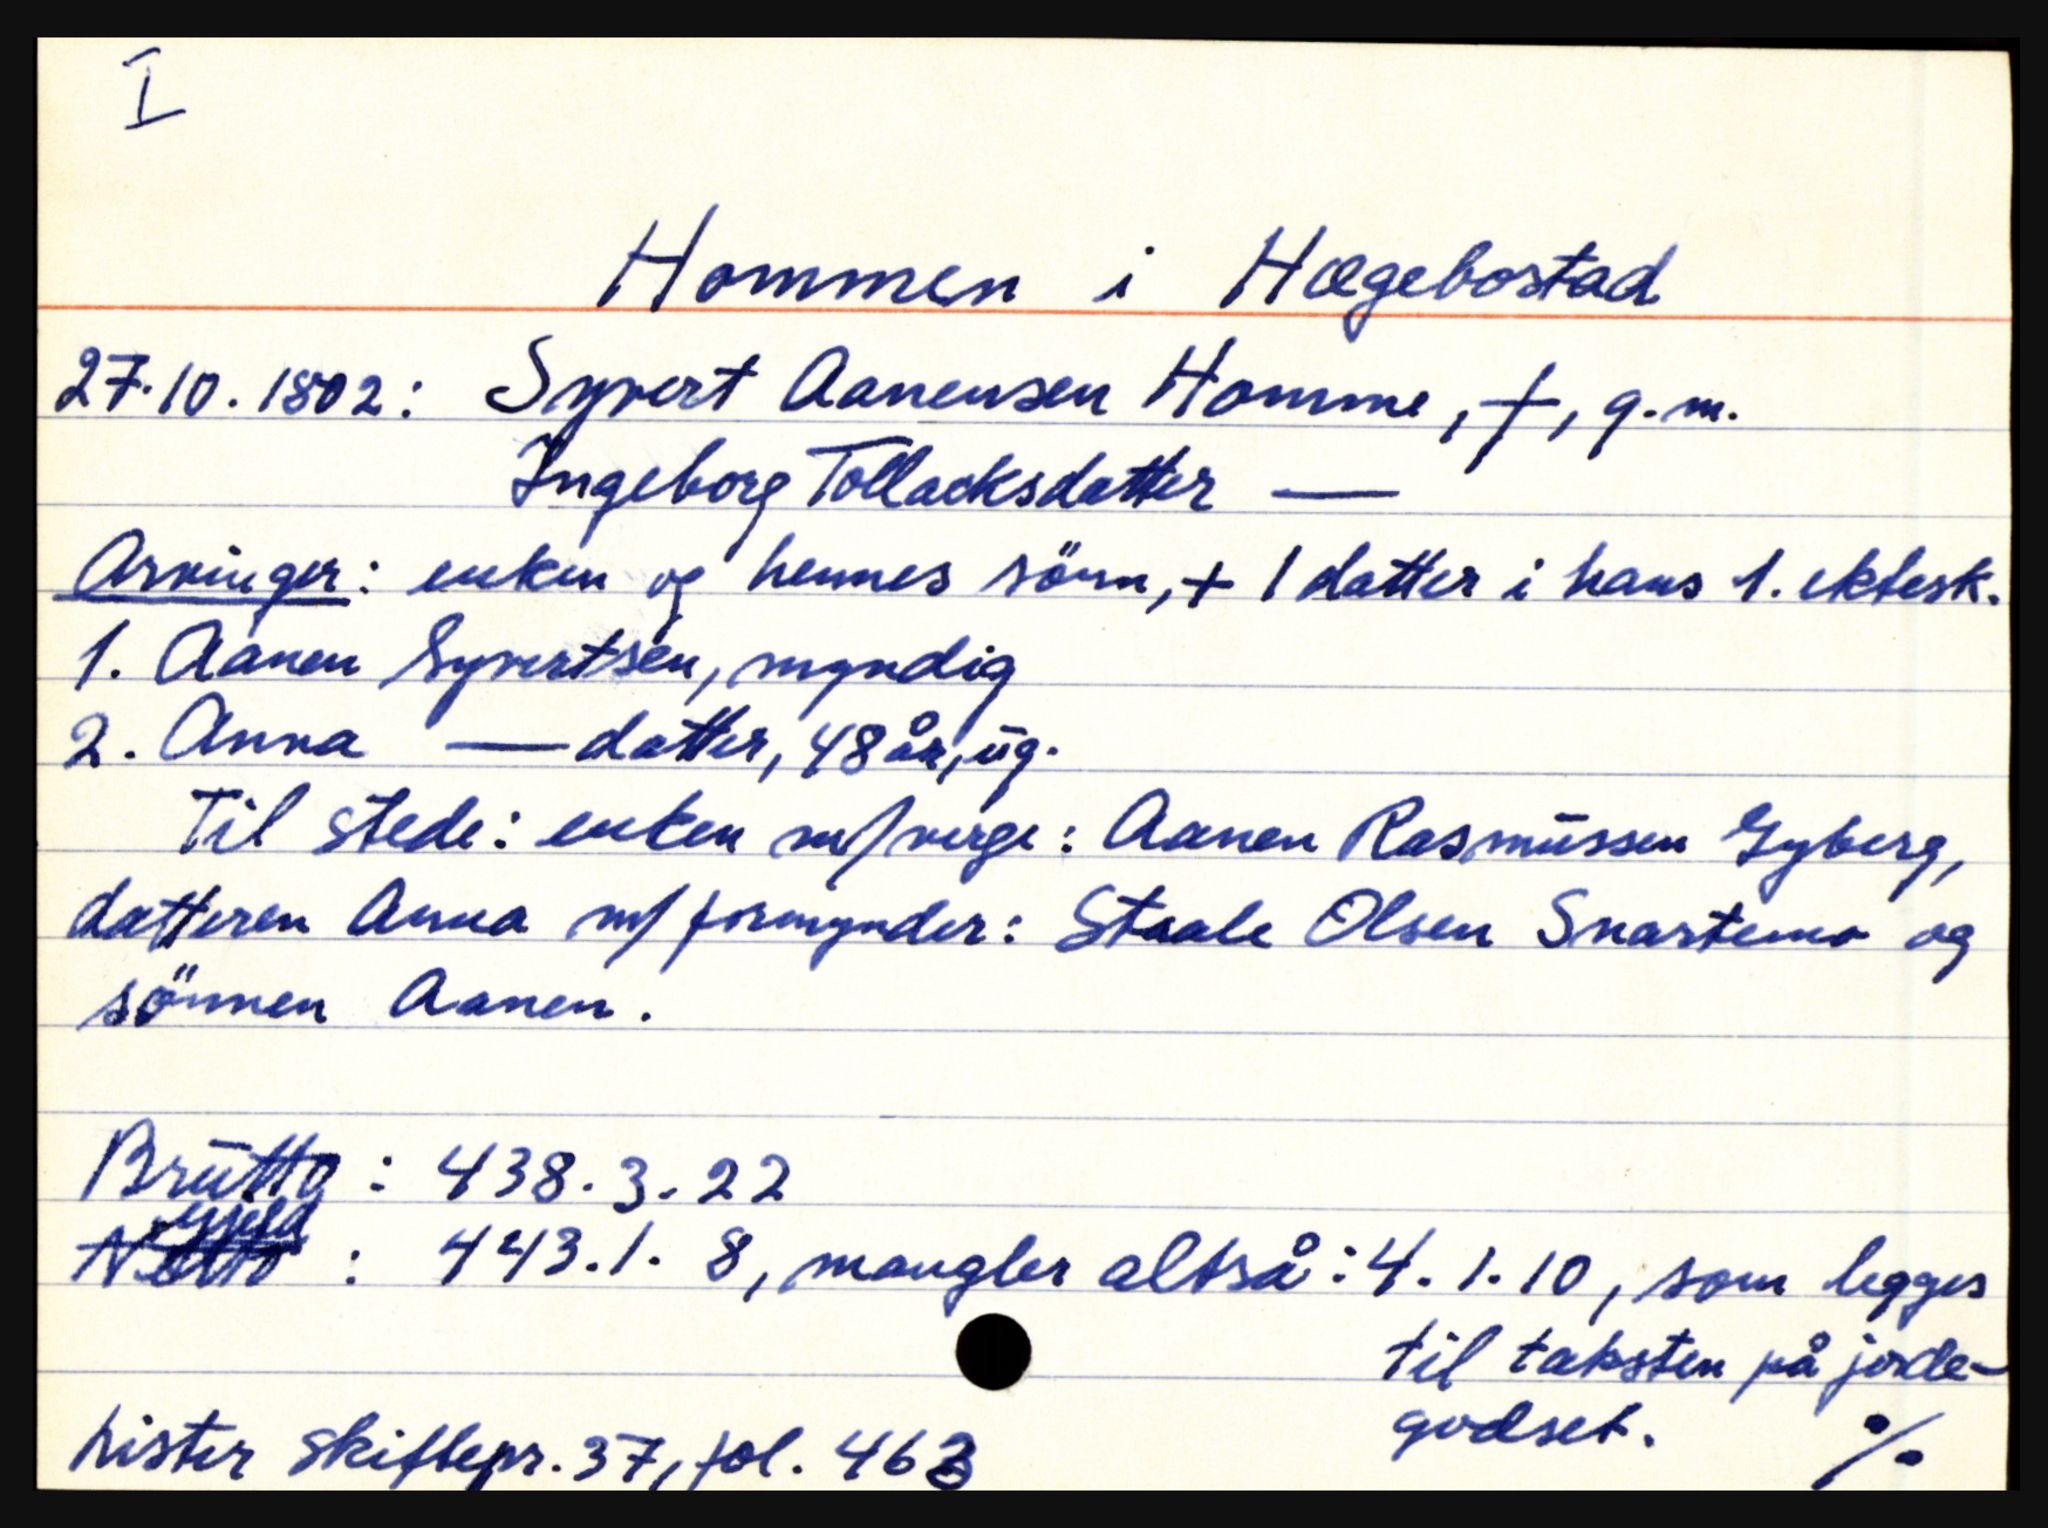 I
Hommen i Hægebostad
27.10.1802: Syvert Aanensen Homme, †, g.m.
Ingeborg Tollacksdatter —
Arvinger: enken og hennes sönn, + 1 datter i hans 1. ektesk.
1. Aanen Syvertsen, myndig
2. Anna — datter, 48 år, ug.
Til stede: enken m/verge: Aanen Rasmussen Gyberg,
datteren Anna m/formynder: Staale Olsen Snartemo og
sönnen Aanen.
Brutto: 438.3.22
gjeld
Netto : 443.1. 8, mangler altså: 4.1.10, som legges
til taksten på jorde-
godset. %
Lister skiftepr. 37, fol. 463